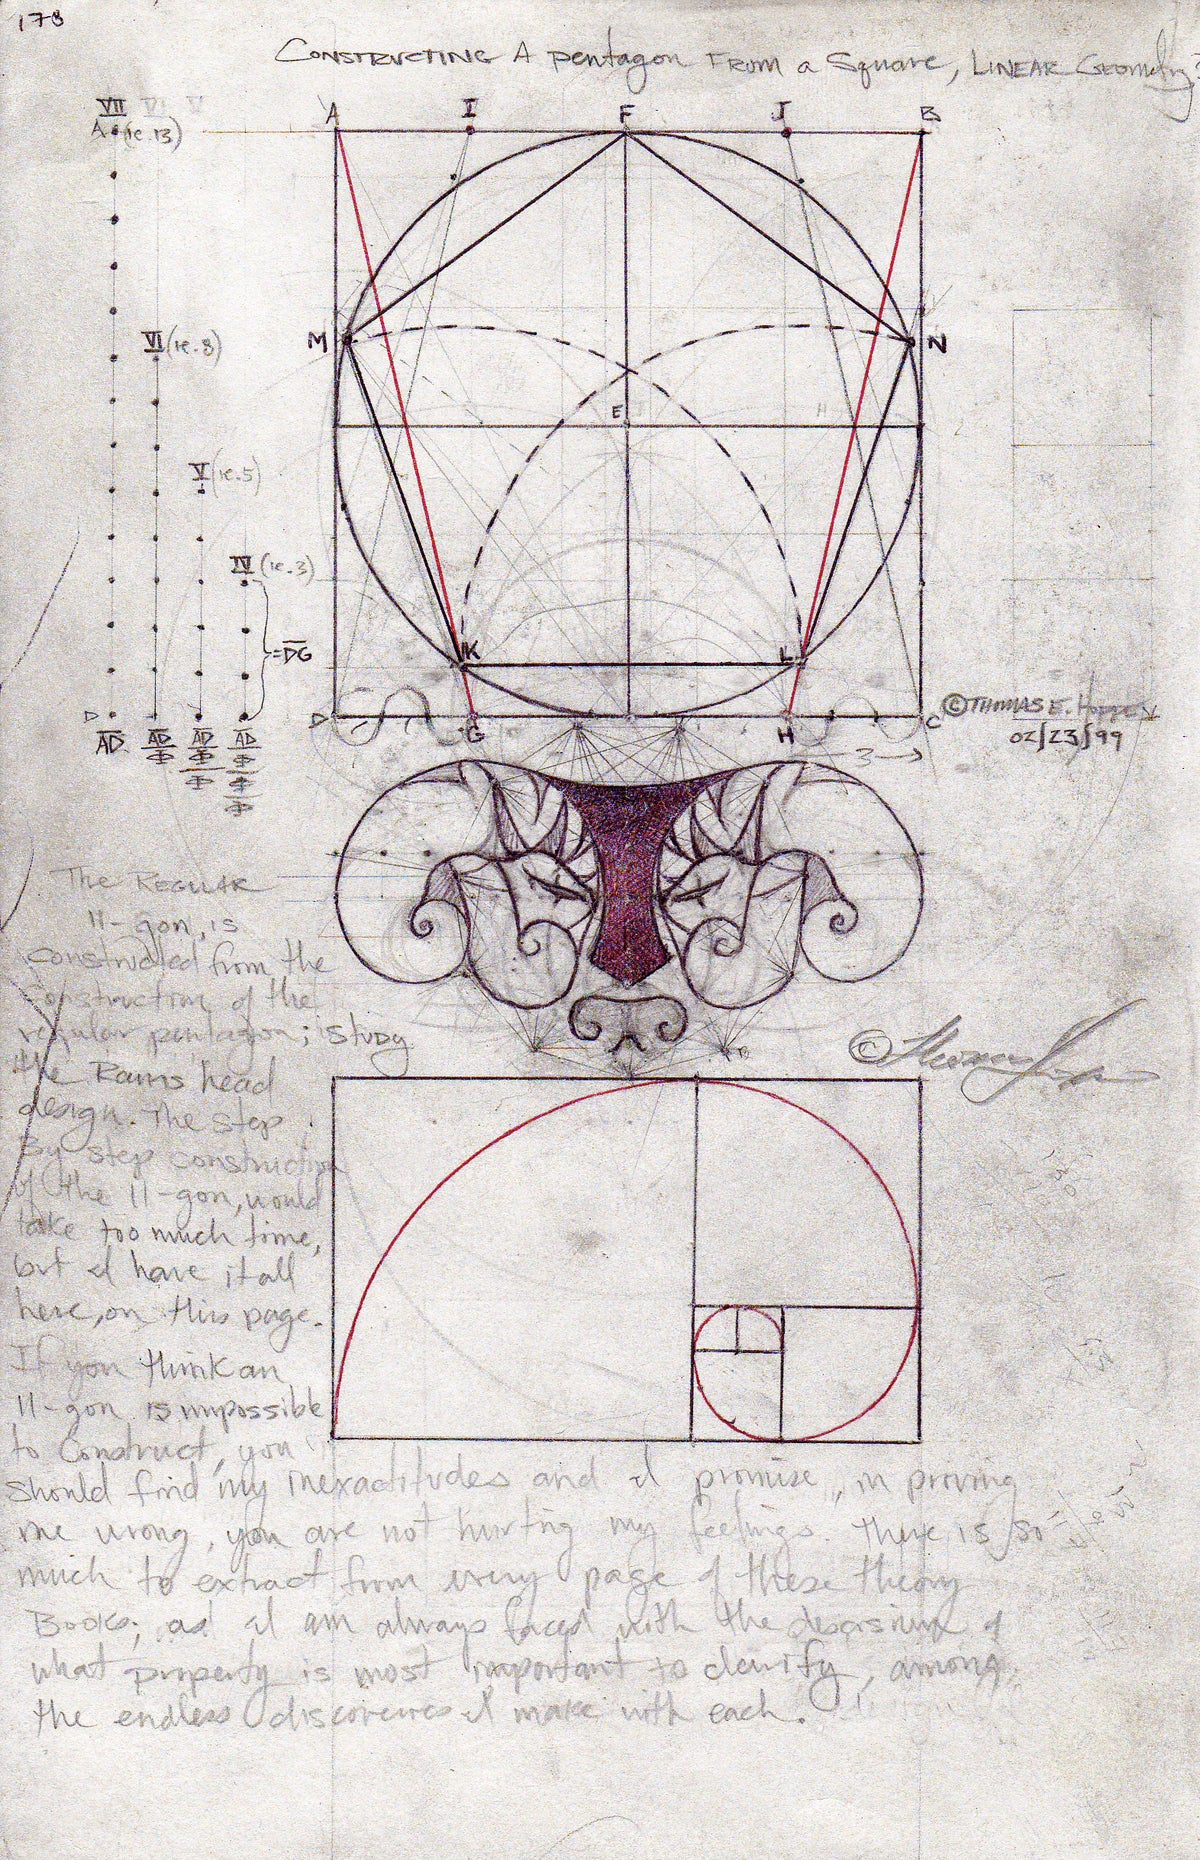 173
CONSTRUCTING A pentagon FROM a Square, LINEAR Geometry
VII VI V
A (ie. 13)
A I F J B
VI (ie. 8)
M N
V (ie. 5)
E H
IV (ie. 3)
K L
= DG
D AD AD/Φ AD/Φ/Φ AD/Φ/Φ/Φ
D G H C
©THOMAS E. HOPPEY
02/23/99
3 →
The REGULAR
11-gon, is
constructed from the
construction of the
regular pentagon; study
the Rams head
design. The step
By step construction
of the 11-gon, would
take too much time,
but I have it all
here, on this page.
If you think an
11-gon is impossible
to Construct, you
should find my inexactitudes and I promise, in proving
me wrong, you are not hurting my feelings. There is so
much to extract from every page of these theory
Books; as I am always faced with the descision of
what property is most important to clarify, among
the endless discoveries I make with each.
©